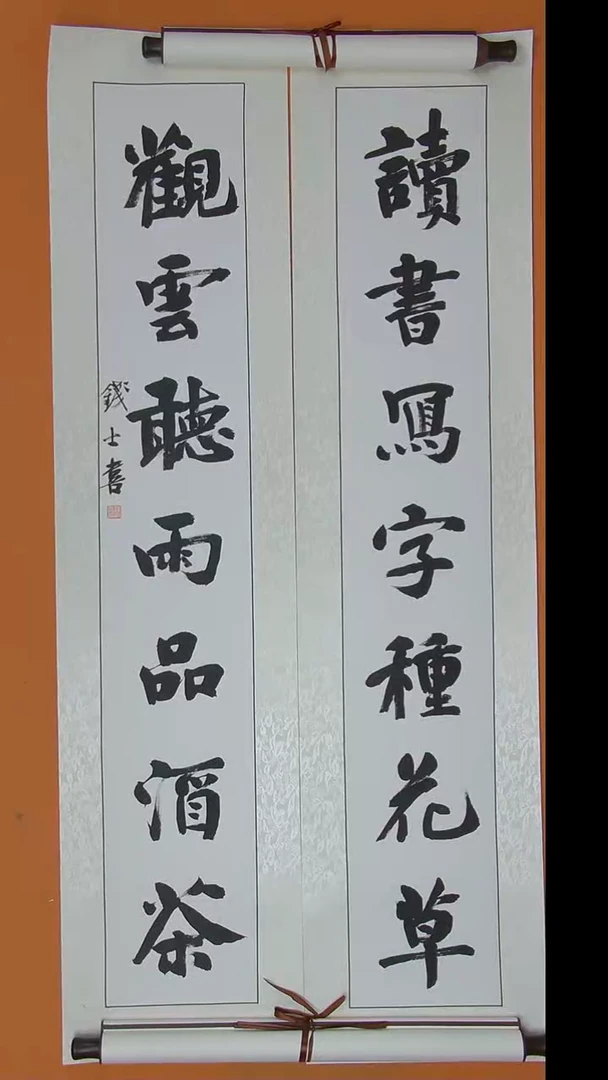 讀書寫字種花草
觀雲聽雨品酒茶
錢士書